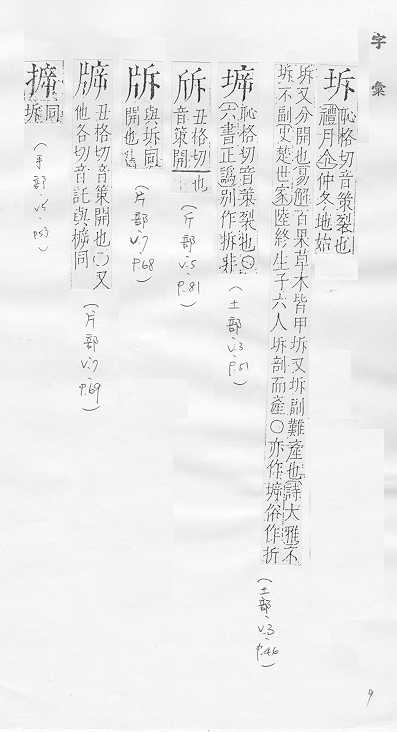 字彙
坼 恥格切音策裂也
禮月令仲冬地始
坼又分開也易解百果草木皆甲坼又坼副難產也詩大雅不
坼不副史楚世家陸終生子六人坼剖而產○亦作㙸俗作折
(土部 v.3 p.46)
㙸 恥格切音策裂也○
六書正譌別作拆非
(土部 v.3 p.51)
斨 丑格切
音策開也
(斤部 v.5 p.81)
與坼同
開也
(片部 v.7 p.68)
丑格切音策開也○又
他各切音託與㯓同
(片部 v.7 p.69)
同
坼
(手部 v.5 p.53)
9